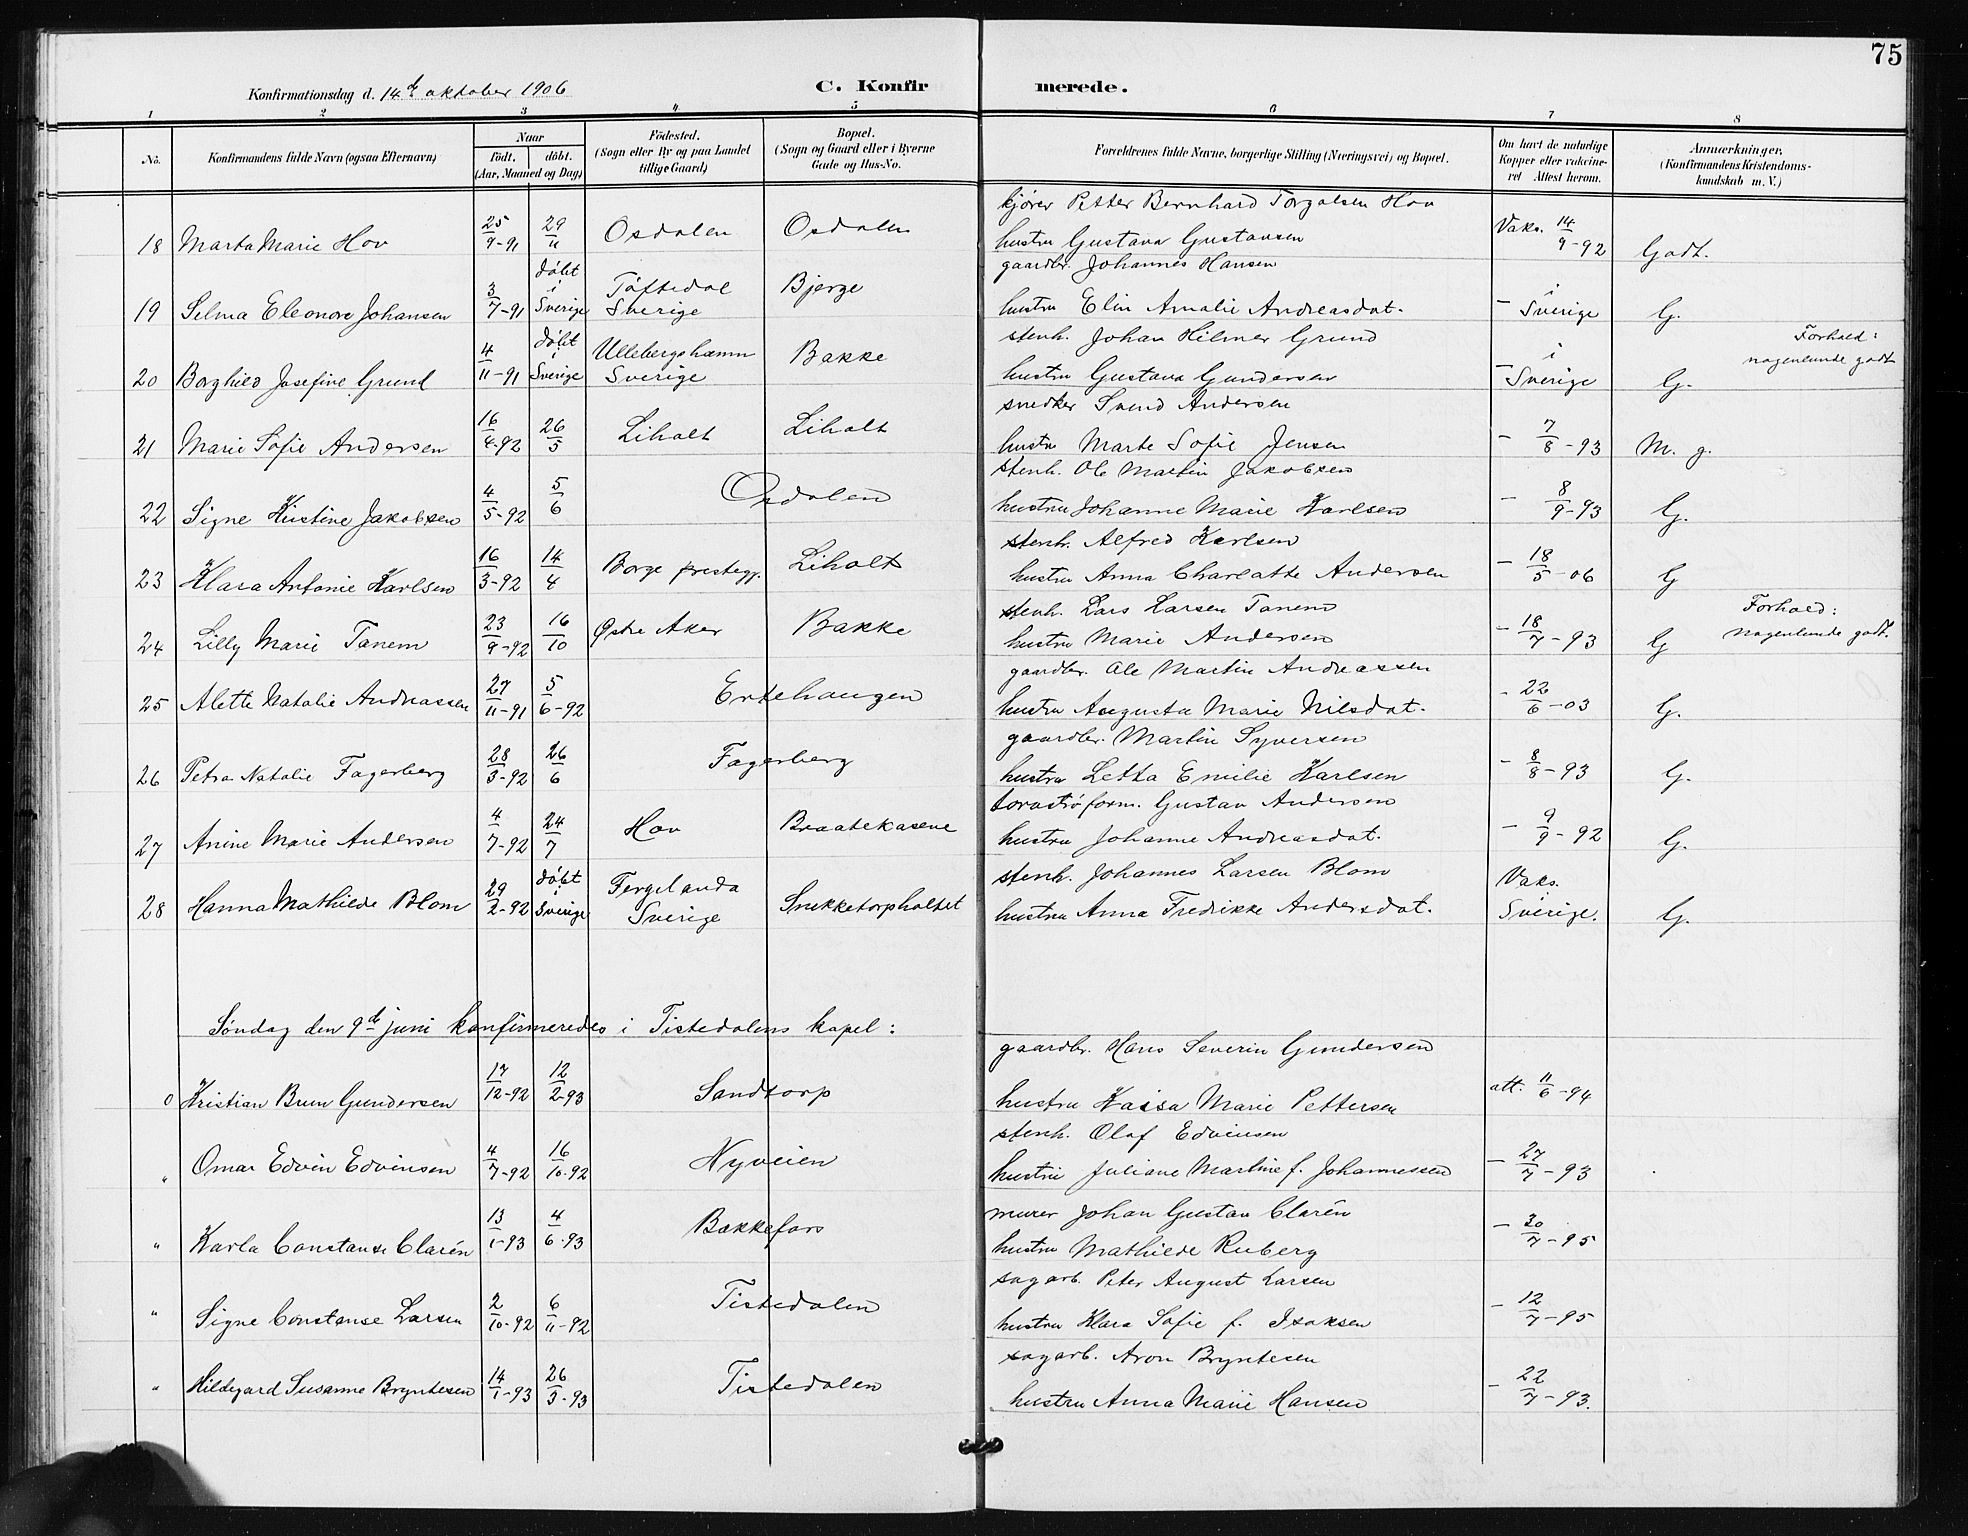 75
Konfirmationsdag d. 14de oktober 1906 C. Konfirmerede.
1 2 3 4 5 6 7 8
No. Konfirmandens fulde Navn (ogsaa Efternavn) Naar født. døbt. (Aar, Maaned og Dag) Födested. (Sogn eller By og paa Landet tillige Gaard) Bopæl. (Sogn og Gaard eller i Byerne Gade og Hus-No. Forældrenes fulde Navne, borgerlige Stilling (Næringsvei) og Bopæl. Om havt de naturlige Kopper eller vakcineret Attest herom. Anmærkninger, (Konfirmandens Kristendomskundskab m. V.)
kjører Petter Bernhard Torgalsen Hov
18 Marta Marie Hov 25/9-91 29/11 Osdalen Osdalen hustru Gustava Gustavsen Vaks. 14/9-92 Godt.
gaardbr. Johannes Hansen
19 Selma Eleonore Johansen 3/7-91 døbt i Sverige Töftedal Sverige Bjerge hustru Elin Amalie Andreasdat. - i Sverige G.
stenh. Johan Hilmer Grund
20 Borghild Josefine Grund 4/11-91 døbt i Sverige Ullebergshamn Sverige Bakke hustru Gustava Gundersen - i Sverige G. Forhold: nogenlunde godt
snedker Svend Andersen
21 Marie Sofie Andersen 16/4-92 26/5 Liholt Liholt hustru Marte Sofie Jensen - 7/8-93 M. g.
stenh. Ole Martin Jakobsen
22 Signe Kristine Jakobsen 4/5-92 5/6 Osdalen hustru Johanne Marie Karlsen - 8/9-93 G.
stenh. Alfred Karlsen
23 Klara Antonie Karlsen 16/3-92 14/4 Borge prestegj. Liholt hustru Anna Charlotte Andersen - 18/5-06 G
stenh. Lars Larsen Tanem
24 Lilly Marie Tanem 23/9-92 16/10 Østre Aker Bakke hustru Marie Andersen - 18/7-93 G Forhold: nogenlunde godt.
gaardbr. Ole Martin Andreassen
25 Alette Natalie Andreassen 27/11-91 5/6-92 Ertehaugen hustru Augusta Marie Nilsdat. - 22/6-03 G.
gaardbr. Martin Syversen
26 Petra Natalie Fagerberg 28/3-92 26/6 Fagerberg hustru Letta Emilie Karlsen - 8/8-93 G.
torvströform. Gustav Andersen
27 Anine Marie Andersen 4/7-92 24/7 Hov Braatekasene hustru Johanne Andreasdat. - 9/9-92 G.
stenh. Johannes Larsen Blom
28 Hanna Mathilde Blom 29/2-92 døbt i Sverige Fergelanda Sverige Snekketorpholtet hustru Anna Fredrikke Andersdat. Vaks. i Sverige. G.
Søndag den 9de juni konfirmeredes i Tistedalens kapel:
gaardbr. Hans Severin Gundersen
0 Kristian Brun Gundersen 17/12-92 12/2-93 Sandtorp hustru Kaisa Marie Pettersen att. 11/6-94
stenh. Olaf Edvinsen
" Omar Edvin Edvinsen 4/7-92 16/10-92 Nyveien hustru Juliane Martine f. Johannessen - 27/7-93
murer Johan Gustav Clarén
" Karla Constanse Clarén 13/1-93 4/6-93 Bakkefors hustru Mathilde Ruberg - 30/7-95
sagarb. Peter August Larsen
" Signe Constanse Larsen 2/10-92 6/11-92 Tistedalen hustru Klara Sofie f. Isaksen - 12/7-95
sagarb. Aron Bryntesen
" Hildegard Susanne Bryntesen 14/1-93 26/3-93 Tistedalen hustru Anna Marie Hansen - 22/7-93.